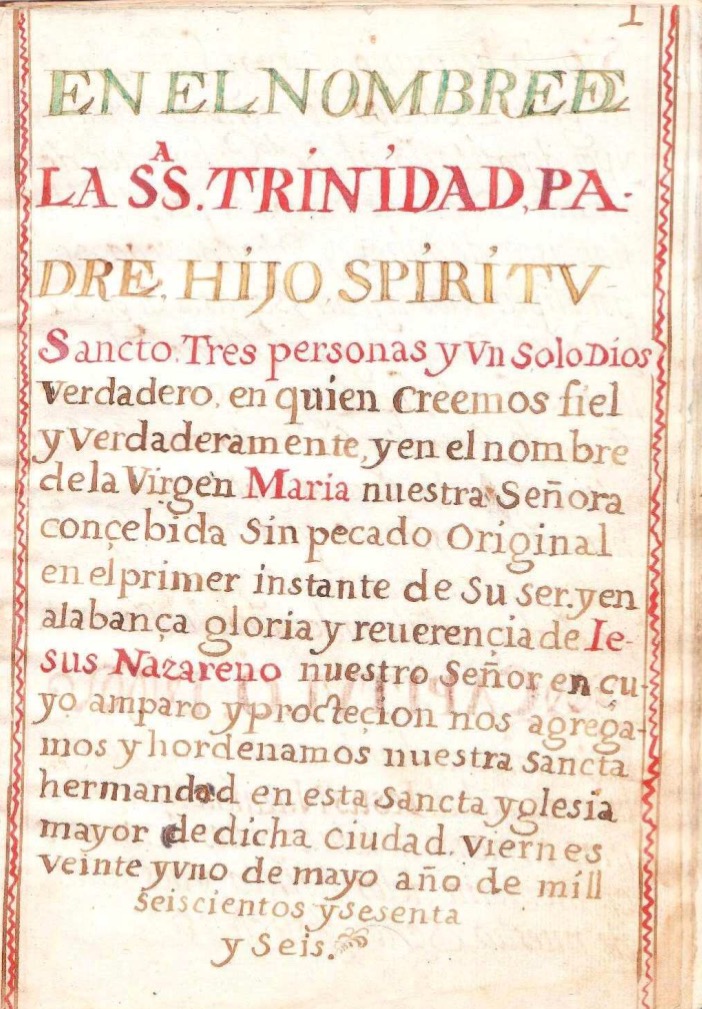 1
EN EL NOMBRE DE
LA SSA. TRINIDAD, PA-
DRE, HIJO, SPIRITV
Sancto. Tres personas y Vn Solo Dios
Verdadero, en quien Creemos fiel
y Verdaderamente, y en el nombre
de la Virgen Maria nuestra Señora
conçebida Sin pecado Original
en el primer instante de Su Ser. y en
alabança gloria y reuerençia de Ie-
sus Nazareno nuestro Señor en çu-
yo amparo y proctecion nos agrega-
mos y hordenamos nuestra Sancta
hermandad en esta Sancta yglesia
mayor de dicha Ciudad. Viernes
veinte y vno de mayo año de mill
Seiscientos y Sesenta
y Seis.